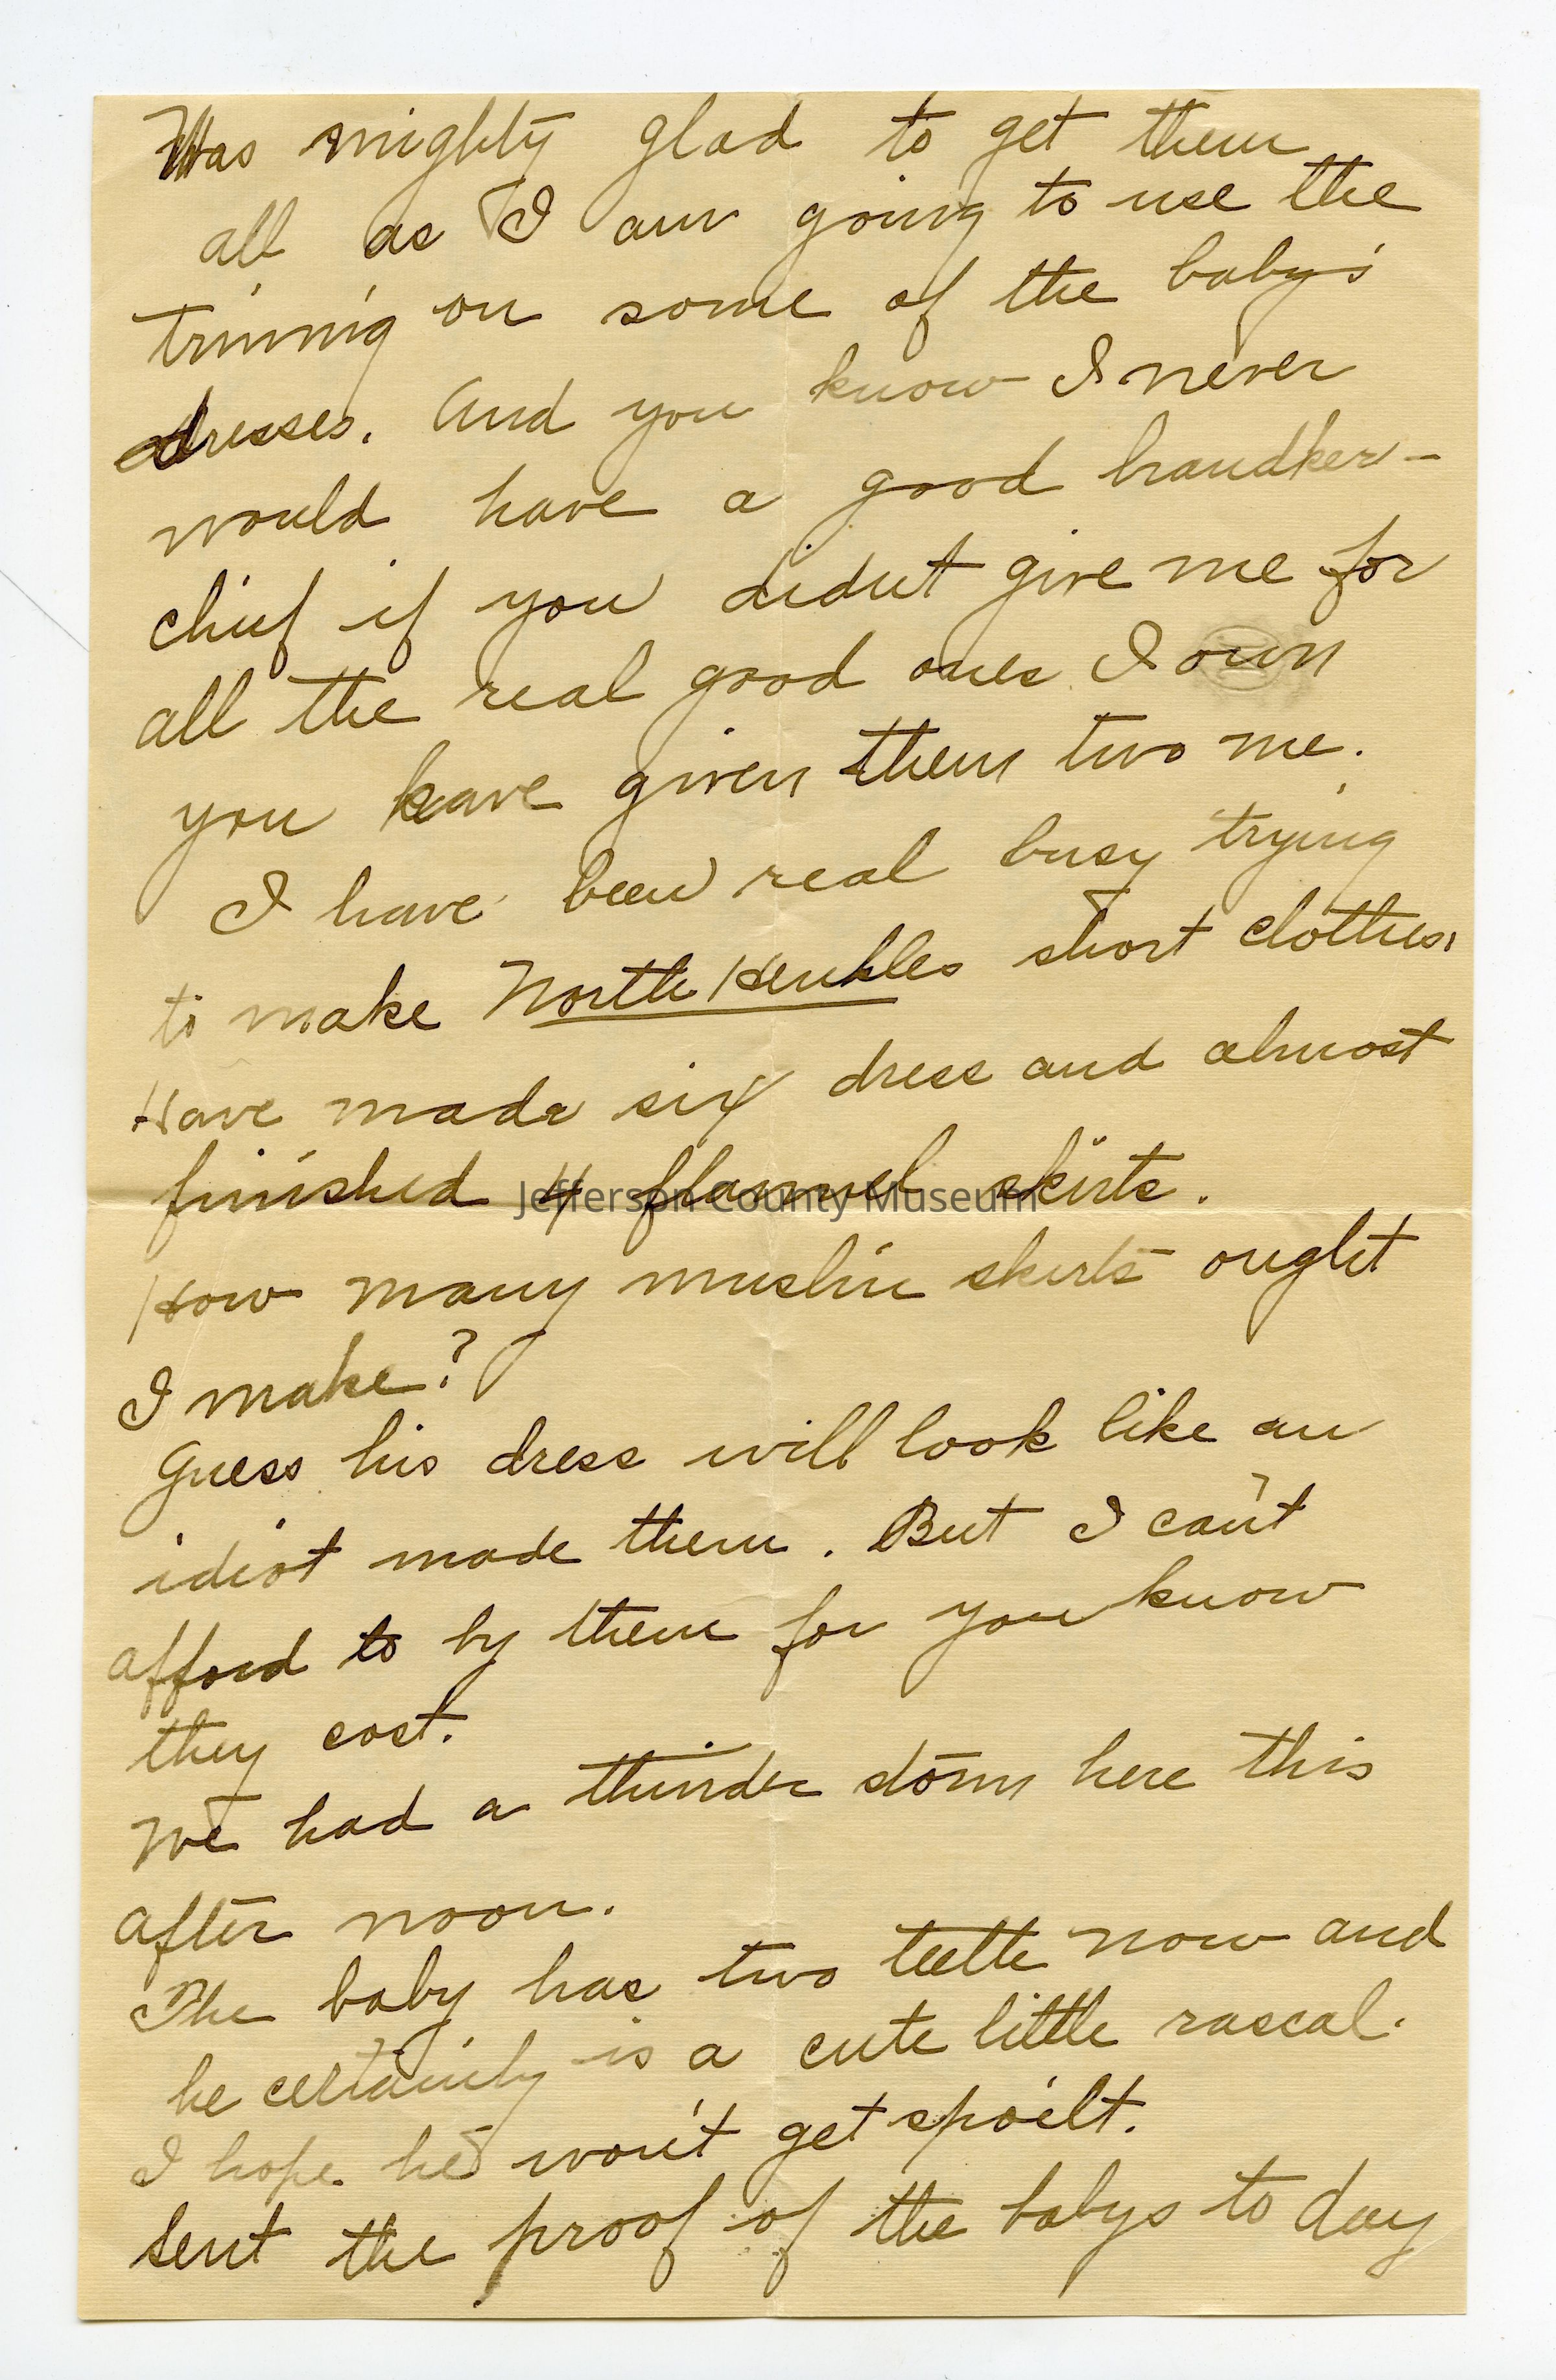 Was mighty glad to get them
all as I am going to use the
trimnig on some of the baby's
dresses. And you know I never
would have a good handker-
chief if you didnt give me for
all the real good ones I own
you have given them two me.
I have been real busy trying
to make North Henkles short clothes.
Have made six dress and almost
finished 4 flannel skirts.
Jefferson County Museum
How many muslin skirts ought
I make?
Guess his dress will look like an
idiot made them. But I can't
afford to by them for you know
they cost.
We had a thunder storm here this
after noon.
The baby has two teeth now and
he certainly is a cute little rascal.
I hope he won't get spoilt.
Sent the proof of the babys to day